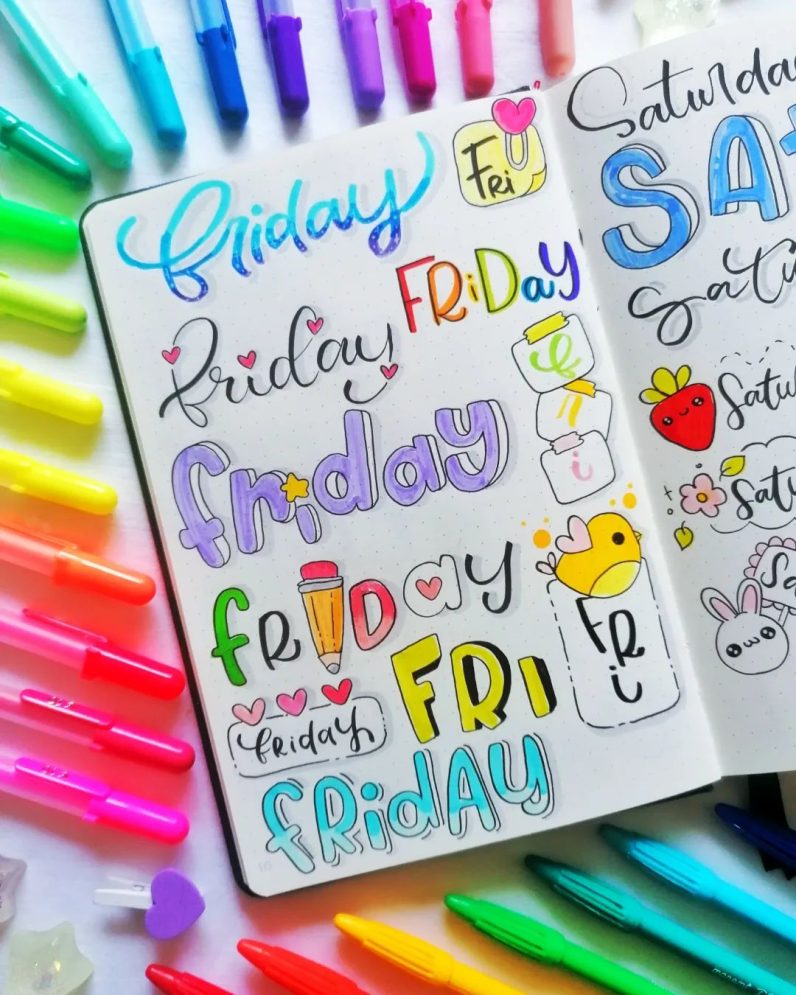 friday
Fri
FRiDaY
friday
f
r
i
friday
fRiDay
F
R
i
FRI
friday
fRidAY
Saturda
SAT
Satu
Satu
Satu
Sa